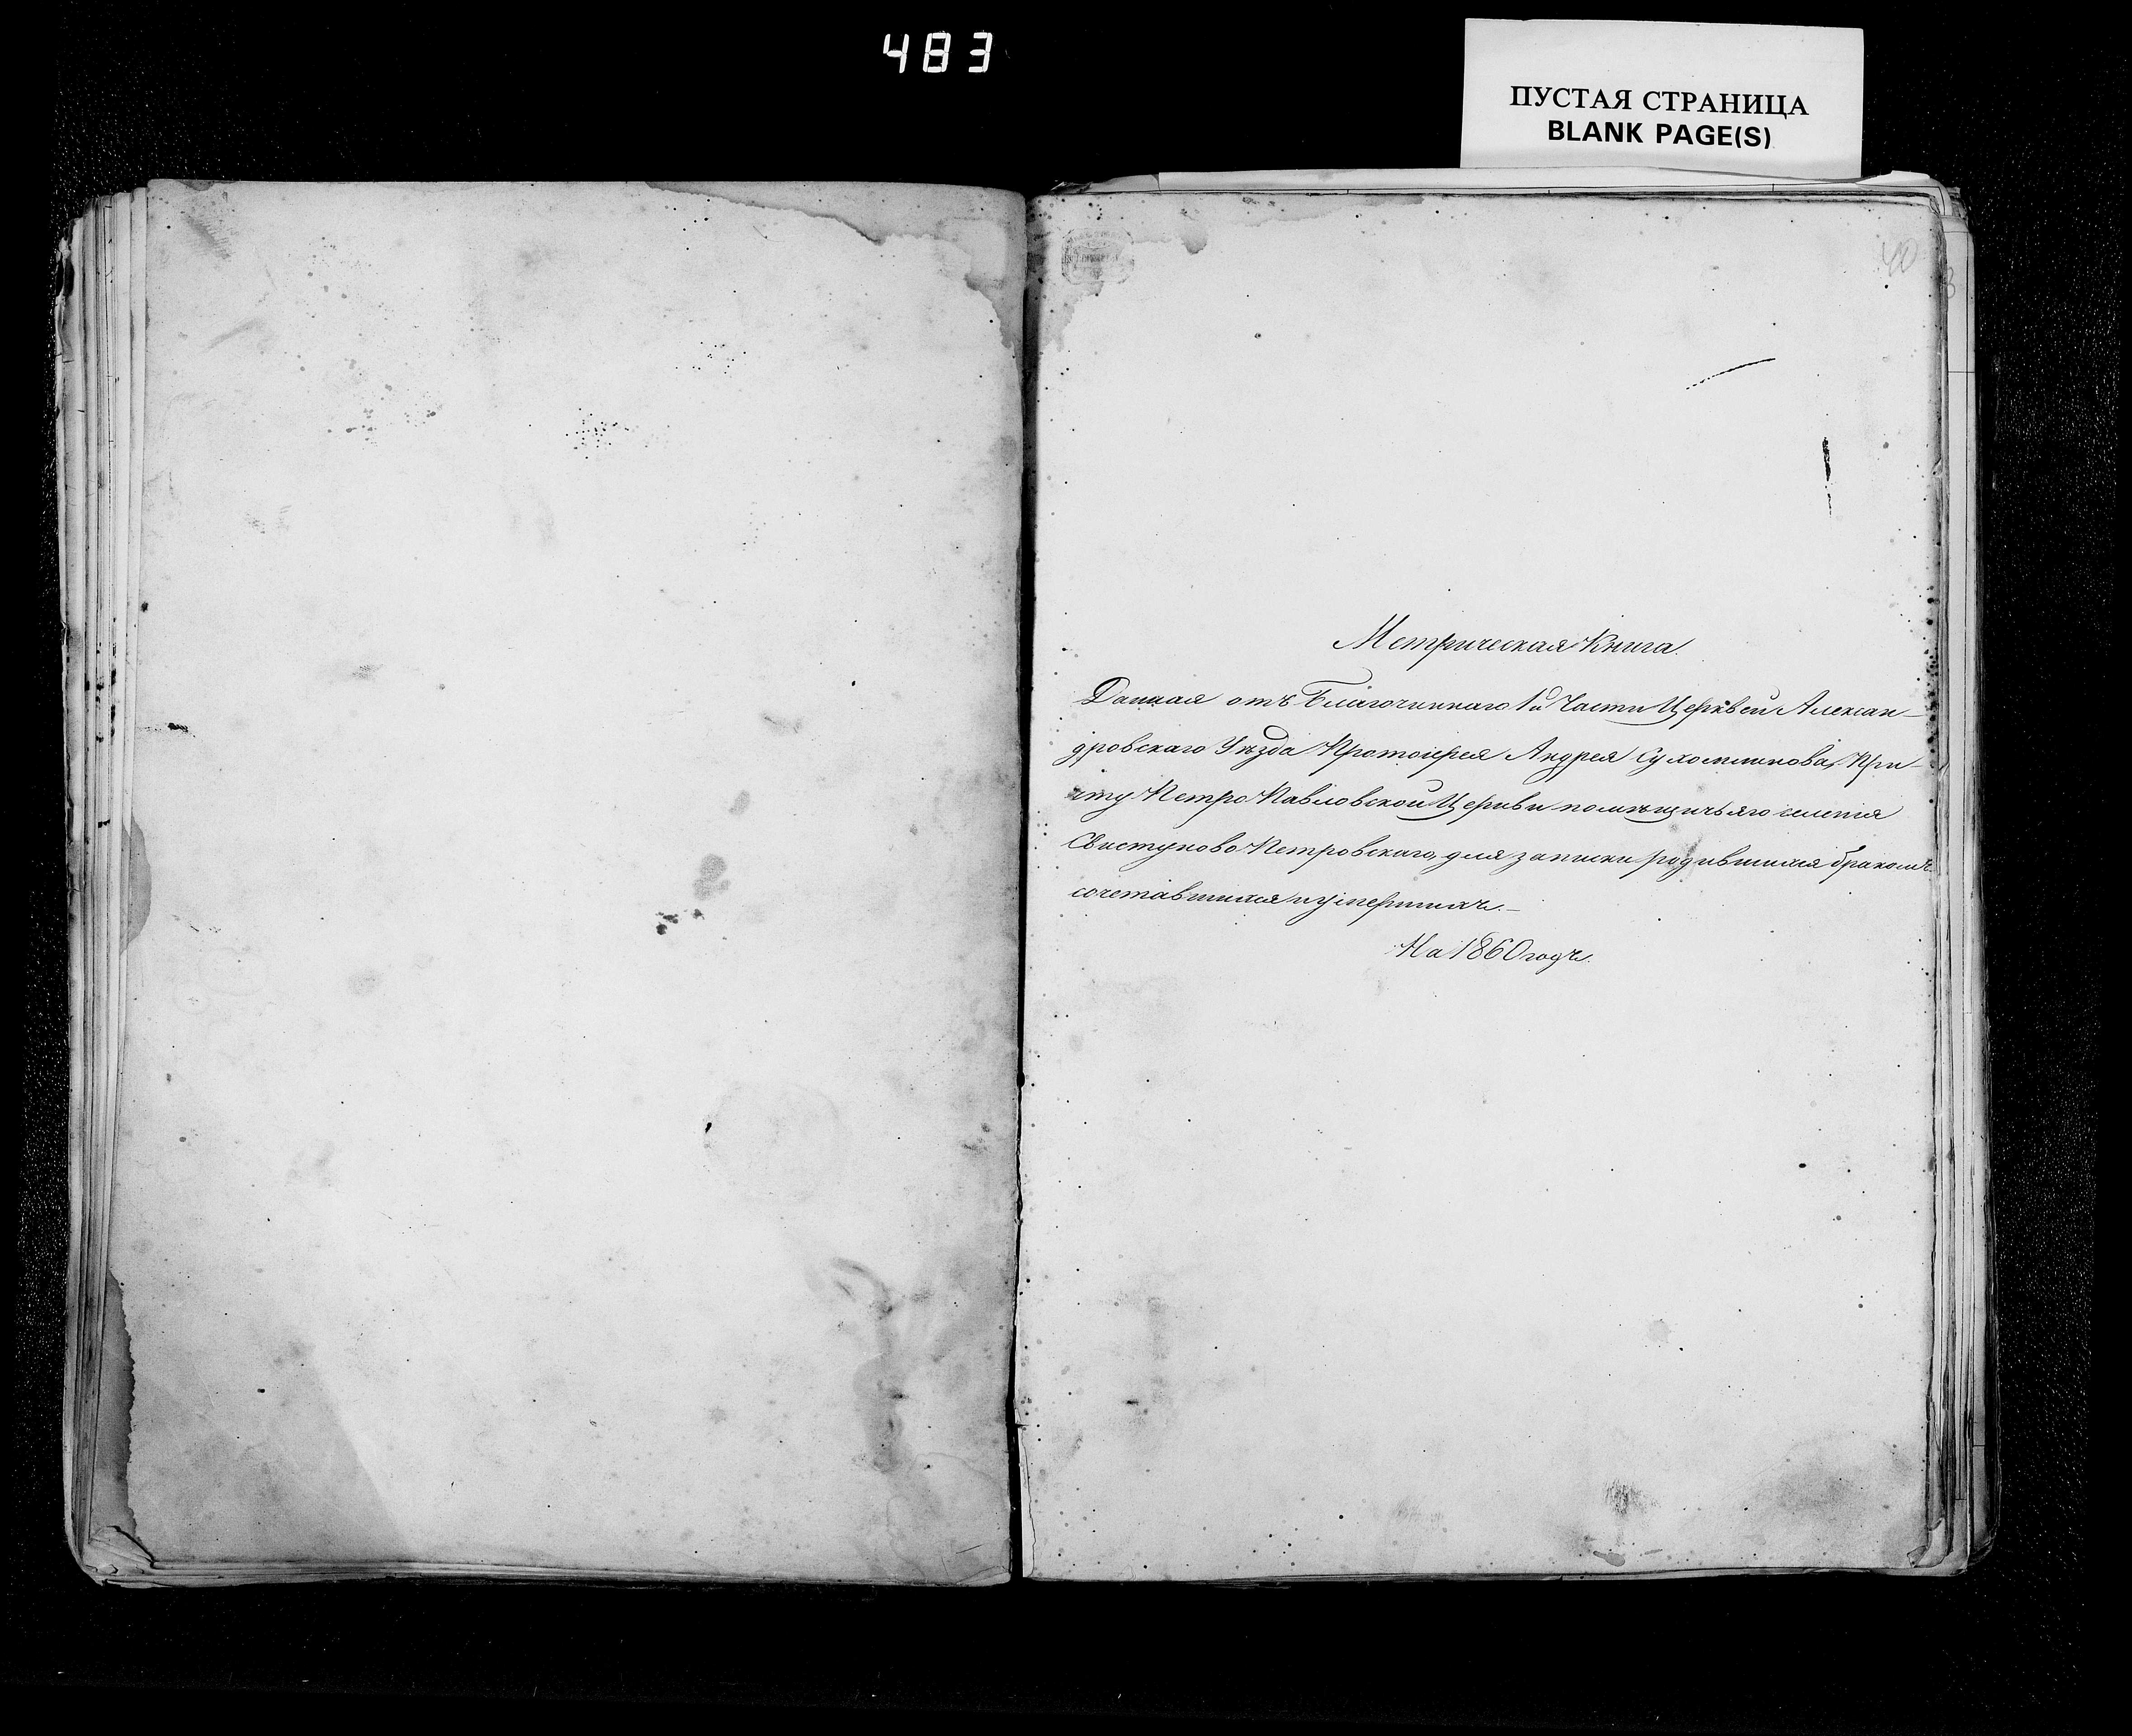 483
ПУСТАЯ СТРАНИЦА
BLANK PAGE(S)
40
Метрическая Книга.
Данная отъ Благочиннаго 1й Части Церквей Алексан-
дровскаго Уѣзда Протоіерея Андрея Сухомлинова, При-
чту Петро Павловской Церкви помѣщичьяго селенія
Свистуново Петровскаго, для записки родившихся бракомъ
сочетавшихся и умершихъ.-
На 1860 годъ.